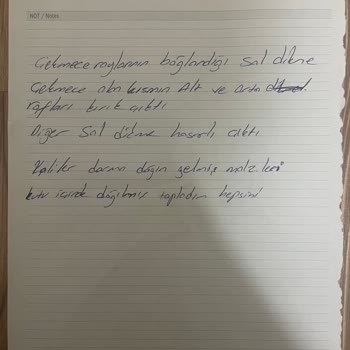 NOT / Notes
Çekmece raylarının bağlandığı sol dikme
Çekmece olan kısmın Alt ve orta
rafları kırık çıktı
Diğer sol dikme hasarlı çıktı
Koliler darma dağın gelmiş malz.leri
kutu içinde dağılmış topladım hepsini